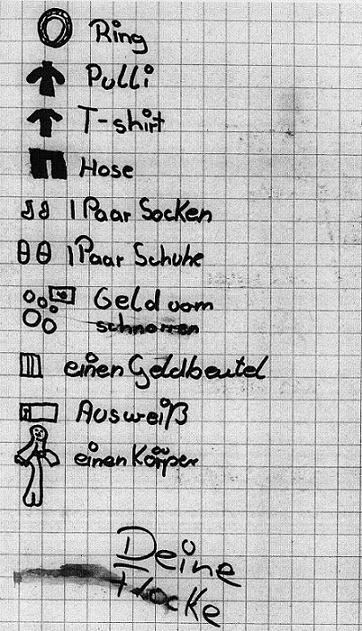 Ring
Pulli
T-shirt
Hose
1 Paar Socken
1 Paar Schuhe
Geld vom
schnorren
einen Geldbeutel
Ausweiß
einen Körper
Deine
Flocke